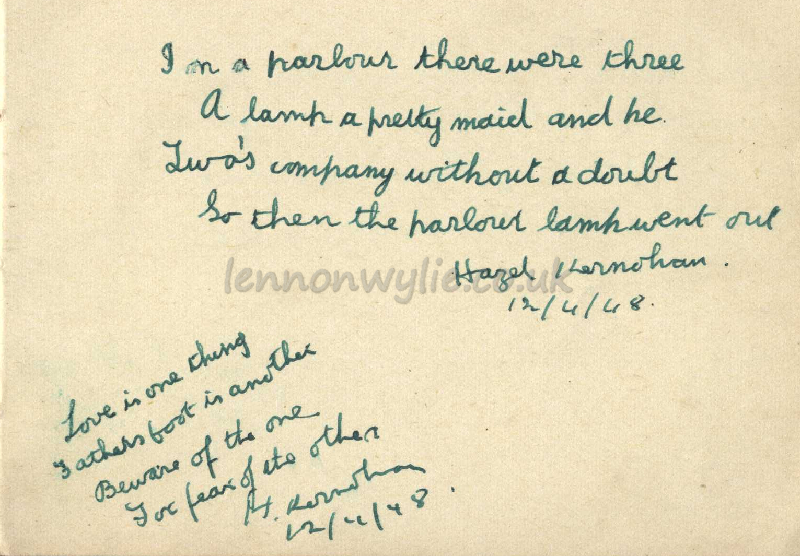 In a parlour there were three
A lamp a pretty maid and he.
Two's company without a doubt
So then the parlour lamp went out
Hazel Kernohan.
12/4/48.
lennonwylie.co.uk
Love is one thing
Fathers foot is another
Beware of the one
For fear of the other
H. Kernohan
12/4/48.